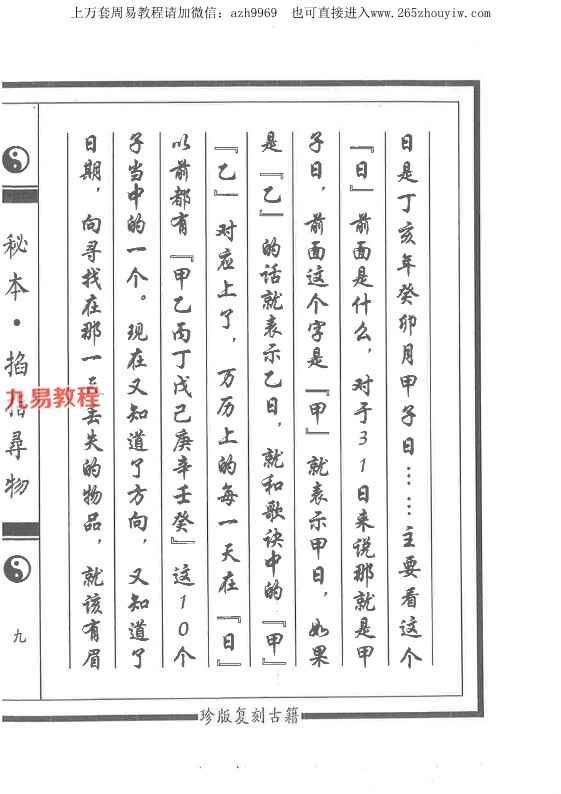 上万套周易教程请加微信：azh9969 也可直接进入www.265zhouyiw.com
日是丁亥年癸卯月甲子日……主要看这个
『日』前面是什么，对于31日来说那就是甲
子日，前面这个字是『甲』就表示甲日，如果
是『乙』的话就表示乙日，就和歌诀中的『甲』
『乙』对应上了，万历上的每一天在『日』
以前都有『甲乙丙丁戊己庚辛壬癸』这10个
子当中的一个。现在又知道了方向，又知道了
日期，向寻找在那一丢失的物品，就该有眉
秘本·掐尋物
九易教程
九
珍版复刻古籍